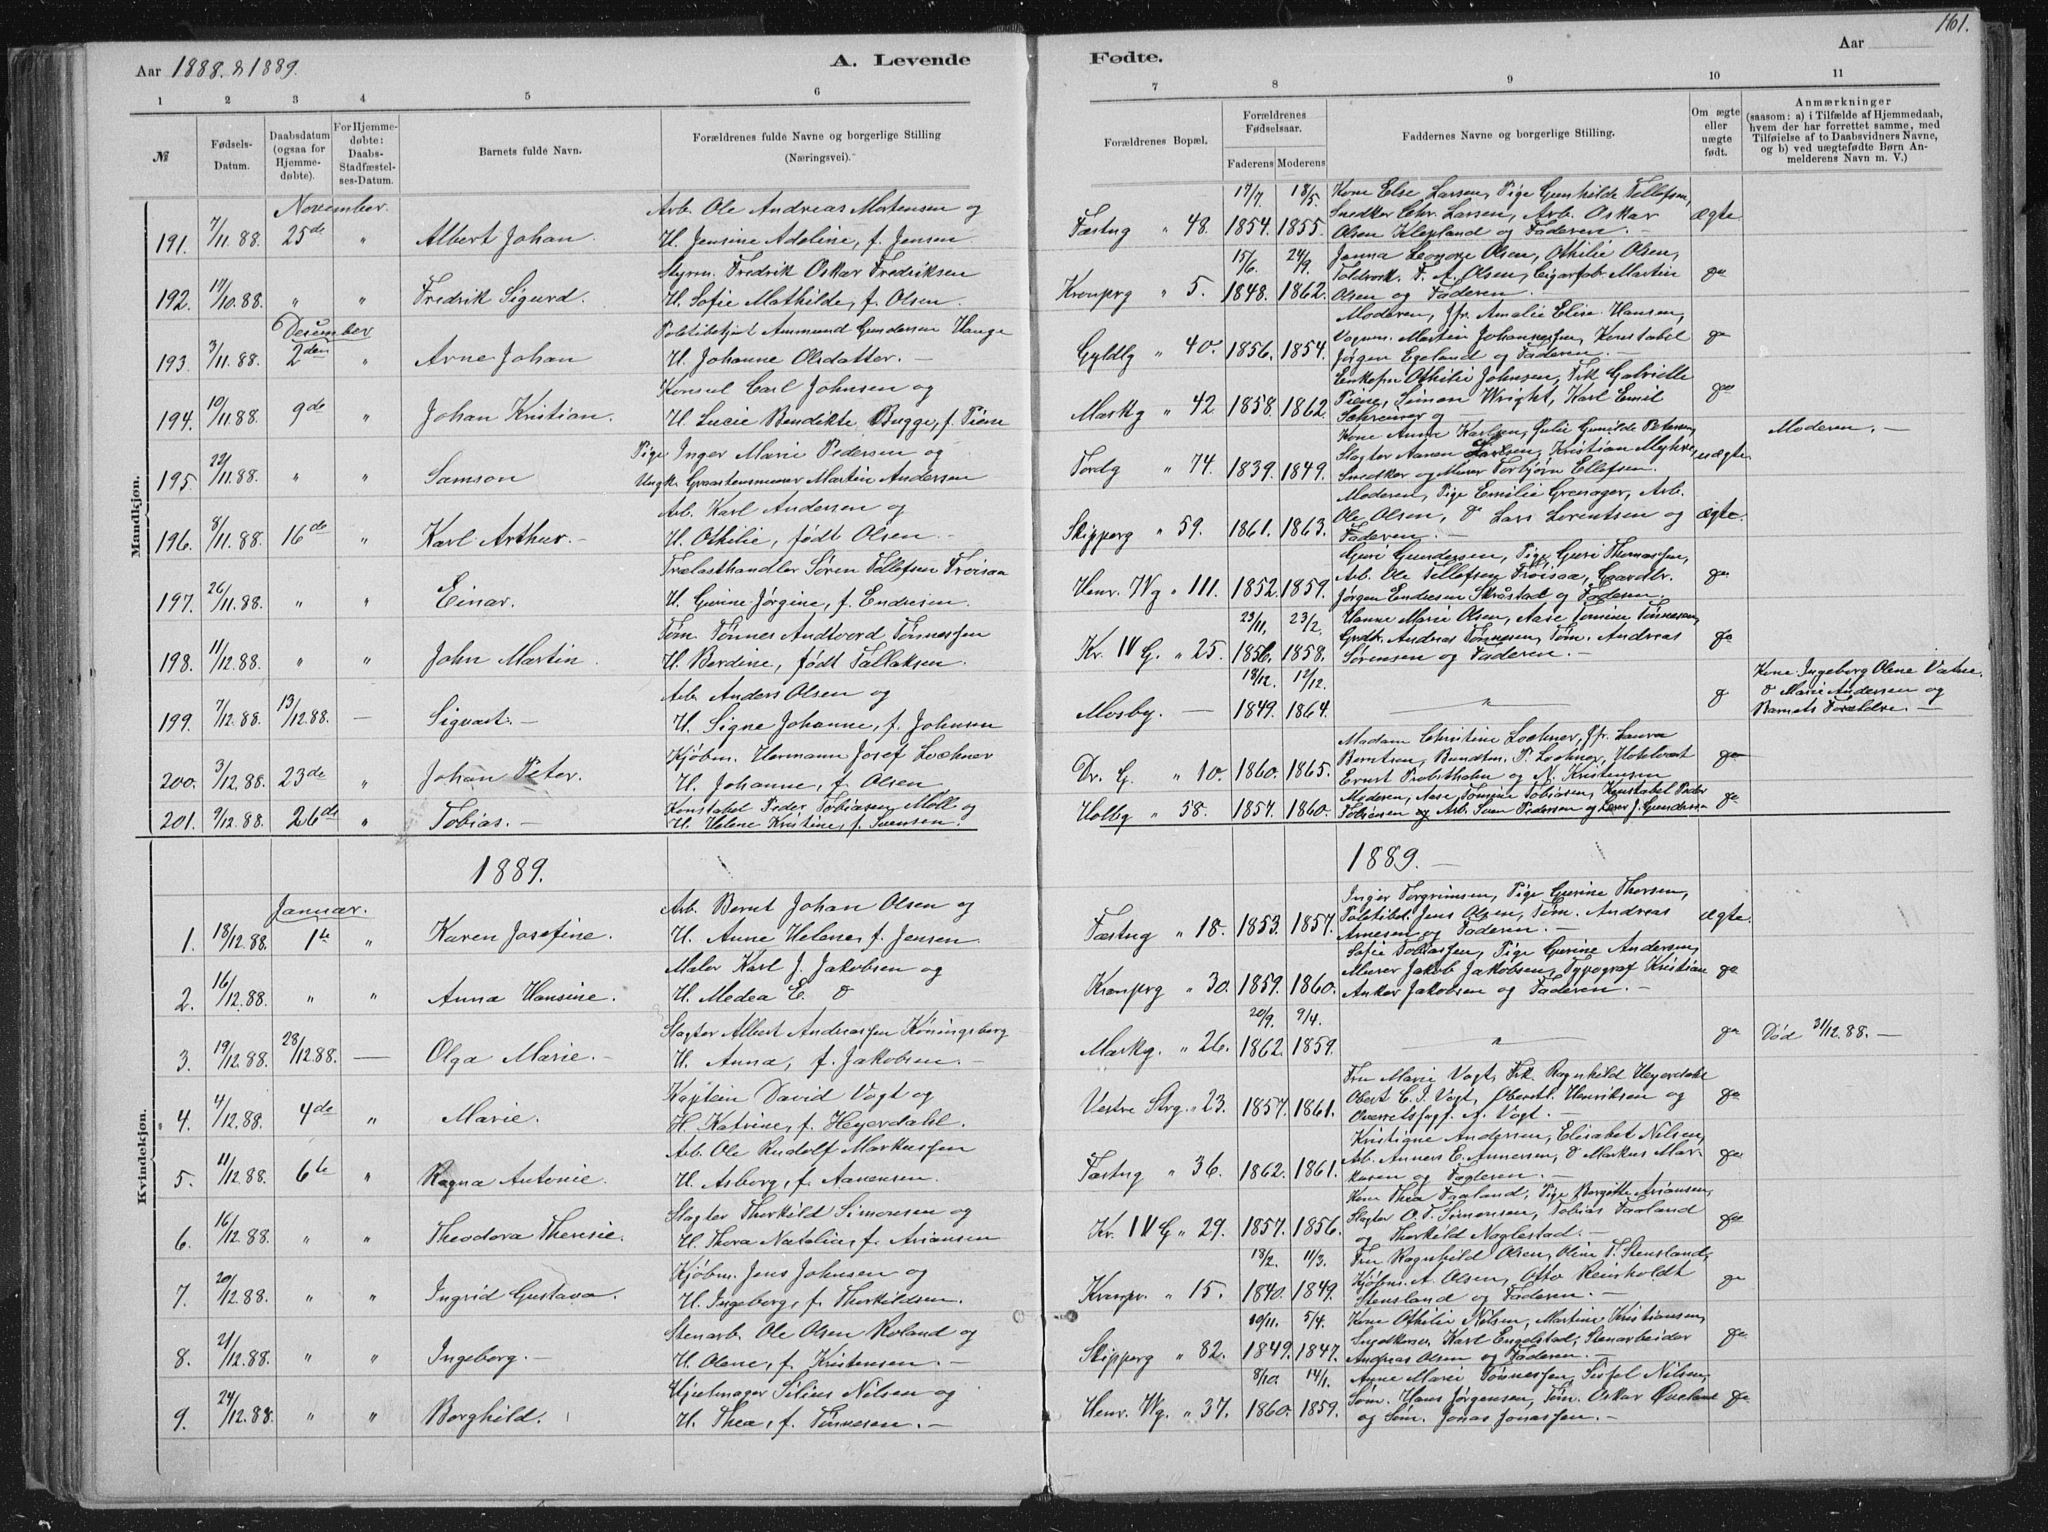 161.
Aar 1888. & 1889.
A. Levende
Fødte.
Aar
1 2 3 4 5 6 7 8 9 10 11
№
Fødsels-
Datum.
Daabsdatum
(ogsaa for
Hjemme-
døbte).
For Hjemme-
døbte:
Daabs-
Stadfæstel-
ses-Datum.
Barnets fulde Navn.
Forældrenes fulde Navne og borgerlige Stilling
(Næringsvei).
Forældrenes Bopæl.
Forældrenes
Fødselsaar.
Faderens Moderens
Faddernes Navne og borgerlige Stilling.
Om ægte
eller
uægte
født.
Anmærkninger
(saasom: a) i Tilfælde af Hjemmedaab,
hvem der har forrettet samme, med
Tilføielse af to Daabsvidners Navne,
og b) ved uægtefødte Børn An-
melderens Navn m. V.)
Mandkjøn.
November.
191. 7/11.88. 25de " Albert Johan.
Arb. Ole Andreas Mortensen og
H. Jensine Adeline, f. Jensen
Fæstng " 48. 17/7. 1854. 18/5. 1855.
Kone Else Larsen, Pige Gunhilde Tellefsen,
Snedker Chr. Larsen, Arb. Oskar
Olsen Klepland og Faderen. —
ægte.
192. 17/10.88. " " Fredrik Sigurd.
Styrm. Fredrik Oskar Fredriksen
H. Sofie Mathilde, f. Olsen.
Kronprg " 5. 15/6. 1848. 24/9. 1862.
Janna Leonore Olsen, Othilie Olsen,
Toldvok. F. A. Olsen, Cigarfabr. Martin
Olsen og Faderen.
do
December
193. 3/11.88. 2den " Arne Johan
Politibetjent Ammund Gundersen Hauge
H. Johanne Olsdatter. —
Gyldlg " 40. 1856. 1854.
Moderen, Jfr. Amalie Elise Hansen,
Vognm. Martin Johannessen, Konstabel
Jørgen Egeland og Faderen. —
do
194. 10/11.88. 9de " Johan Kristian.
Konsul Carl Johnsen og
H. Lucie Bendikte Bugge, f. Piene
Markg " 42 1858. 1862.
Enkefru Othilie Johnsen, Frk Gabrielle
Piene, Simon Wright, Karl Emil
Schreiner og —
do
195. 22/11.88. " " Samson
Pige Inger Marie Pedersen og
Ungk. Graastensmurer Martin Andersen
Tordg " 74. 1839. 1849.
Kone Anna Karlsen, Julie Gunilde Petersen,
Slagter Aanen Karlsen, Kristian Myhre,
Snedker og Murer Torbjørn Ellefsen.
uægte.
Moderen. —
196. 8/11.88. 16de " Karl Arthur. —
Arb. Karl Andersen og
H. Othilie, født Olsen. —
Skipperg " 59. 1861. 1863.
Moderen, Pige Emilie Grenager, Arb.
Ole Olsen, do Lars Lorentsen og
Faderen. —
ægte.
197. 26/11.88. " " Einar.
Trælasthandler Søren Tellefsen Frøisaa
H. Gurine Jørgine, f. Endresen.
Henr. Wg " 111. 1852. 1859.
Guri Gundersen, Pige Guri Thomassen,
Arb. Ole Tellefsen Frøisaa, Gaardbr.
Jørgen Endresen Skråstad og Faderen.
do
198. 11/12.88. " " John Martin.
Tøm. Tønnes Andtvord Tønnessen
H. Berdine, født Tallaksen.
Kr. IV G. " 25. 23/11. 1856. 23/2. 1858.
Hanne Marie Olsen, Aase Tomine Tønnesen,
Grdb. Andreas Tønnesen, Tøm. Andreas
Sørensen og Faderen. —
do
199. 7/12.88. 13/12.88. — Sigvart. —
Arb. Anders Olsen og
H. Signe Johanne, f. Johnsen
Mosby. — 18/12. 1849. 12/12. 1864.
"
do
Kone Ingeborg Olene Vatne.
do Marie Andersen og
Barnets Forældre. —
200. 3/12.88. 23de " Johan Peter.
Kjøbm. Hermann Josef Lochner
H. Johanne, f. Olsen
Dr. G. " 10. 1860. 1865.
Madam Christine Lochner, Jfr. Laura
Berntsen, Bundtm. P. Lochner, Hotelvært
Ernst Probsthahn og N. Kristensen
do
201. 9/12.88. 26de " Tobias. —
Konstabel Peder Tobiasen Møll og
H. Helene Kristine, f. Svensen.
Holbg " 58. 1857. 1860.
Moderen, Aase Tomine Tobiasen, Konstabel Peder
Tobiasen og Arb. Sven Pedersen og J. Gundersen
do
1889.
1889. —
Kvindekjøn.
Januar.
1. 18/12.88. 1te " Karen Josefine.
Arb. Bernt Johan Olsen og
H. Anne Helene, f. Jensen
Fæstng " 18. 1853. 1857.
Inger Torgrimsen, Pige Gurine Thorsen,
Politibet. Jens Olsen, Tøm. Andreas
Arnesen og Faderen. —
ægte.
2. 16/12.88. " " Anna Hansine.
Maler Karl J. Jakobsen og
H. Medea E. do
Kronprg " 30. 1859. 1860.
Sofie Tobiassen, Pige Gurine Andersen,
Murer Jakob Jakobsen, Typograf Kristian
Anker Jakobsen og Faderen. —
do
3. 19/12.88. 28/12.88. — Olga Marie. —
Slagter Albert Andreassen Köningsberg
H. Anna, f. Jakobsen. —
Markg. " 26. 20/9. 1862. 9/4. 1859.
"
do
Død 31/12.88. —
4. 4/12.88. 4de " Marie.
Kaptein David Vogt og
H. Katrine, f. Heyerdahl.
Vestre Strg. " 23. 1857. 1861.
Fru Marie Vogt, Frk. Ragnhild Heyerdahl
Oberst C. J. Vogt, Oberstl. Henriksen og
Overretssagf. A. Vogt. —
do
5. 11/12.88. 6te " Ragna Antonie.
Arb. Ole Rudolf Markussen
H. Asborg, f. Aanensen.
Fæstng " 36. 1862. 1861.
Kristiane Andersen, Elisabet Nilsen,
Arb. Anners E. Annersen, do Markus Mar-
kusen og Faderen. —
do
6. 16/12.88. " " Theodora Theresie.
Slagter Thorkild Simonsen og
H. Thora Natalia, f. Ariansen
Kr. IV G " 29. 1857. 1856.
Kone Thea Faaland, Pige Birgitte Ariansen,
Slagter O. T. Simonsen, Tobias Faaland
og Thorkild Naglestad. —
do
7. 20/12.88. " " Ingrid Gustava.
Kjøbm. Jens Johnsen og
H. Ingeborg, f. Thorkildsen.
Kronpr. " 15. 18/2. 1840. 11/3. 1849.
Fru Ragnhild Olsen, Oline T. Stensland,
Kjøbm. A. Olsen, Otto Reinholdt
Stensland og Faderen. —
do
8. 21/12.88. " " Ingeborg. —
Stenarb. Ole Olsen Roland og
H. Olene, f. Kristensen. —
Skipperg " 82. 10/11. 1849. 5/4. 1847.
Kone Othilie Nilsen, Martine Kristiansen,
Snedkersv. Karl Engelstad, Stenarbeider
Andreas Olsen og Faderen. —
do
9. 24/12.88. " " Borghild.
Hjulmager Silius Nilsen og
H. Thea, f. Tønnesen. —
Henr. Wg. " 37. 8/10. 1860. 14/1. 1859.
Anne Marie Tønnessen, Sissel Nilsen,
Søm. Hans Jørgensen, Tøm. Oskar Øueland
og Søm. Jonas Jonassen. —
do